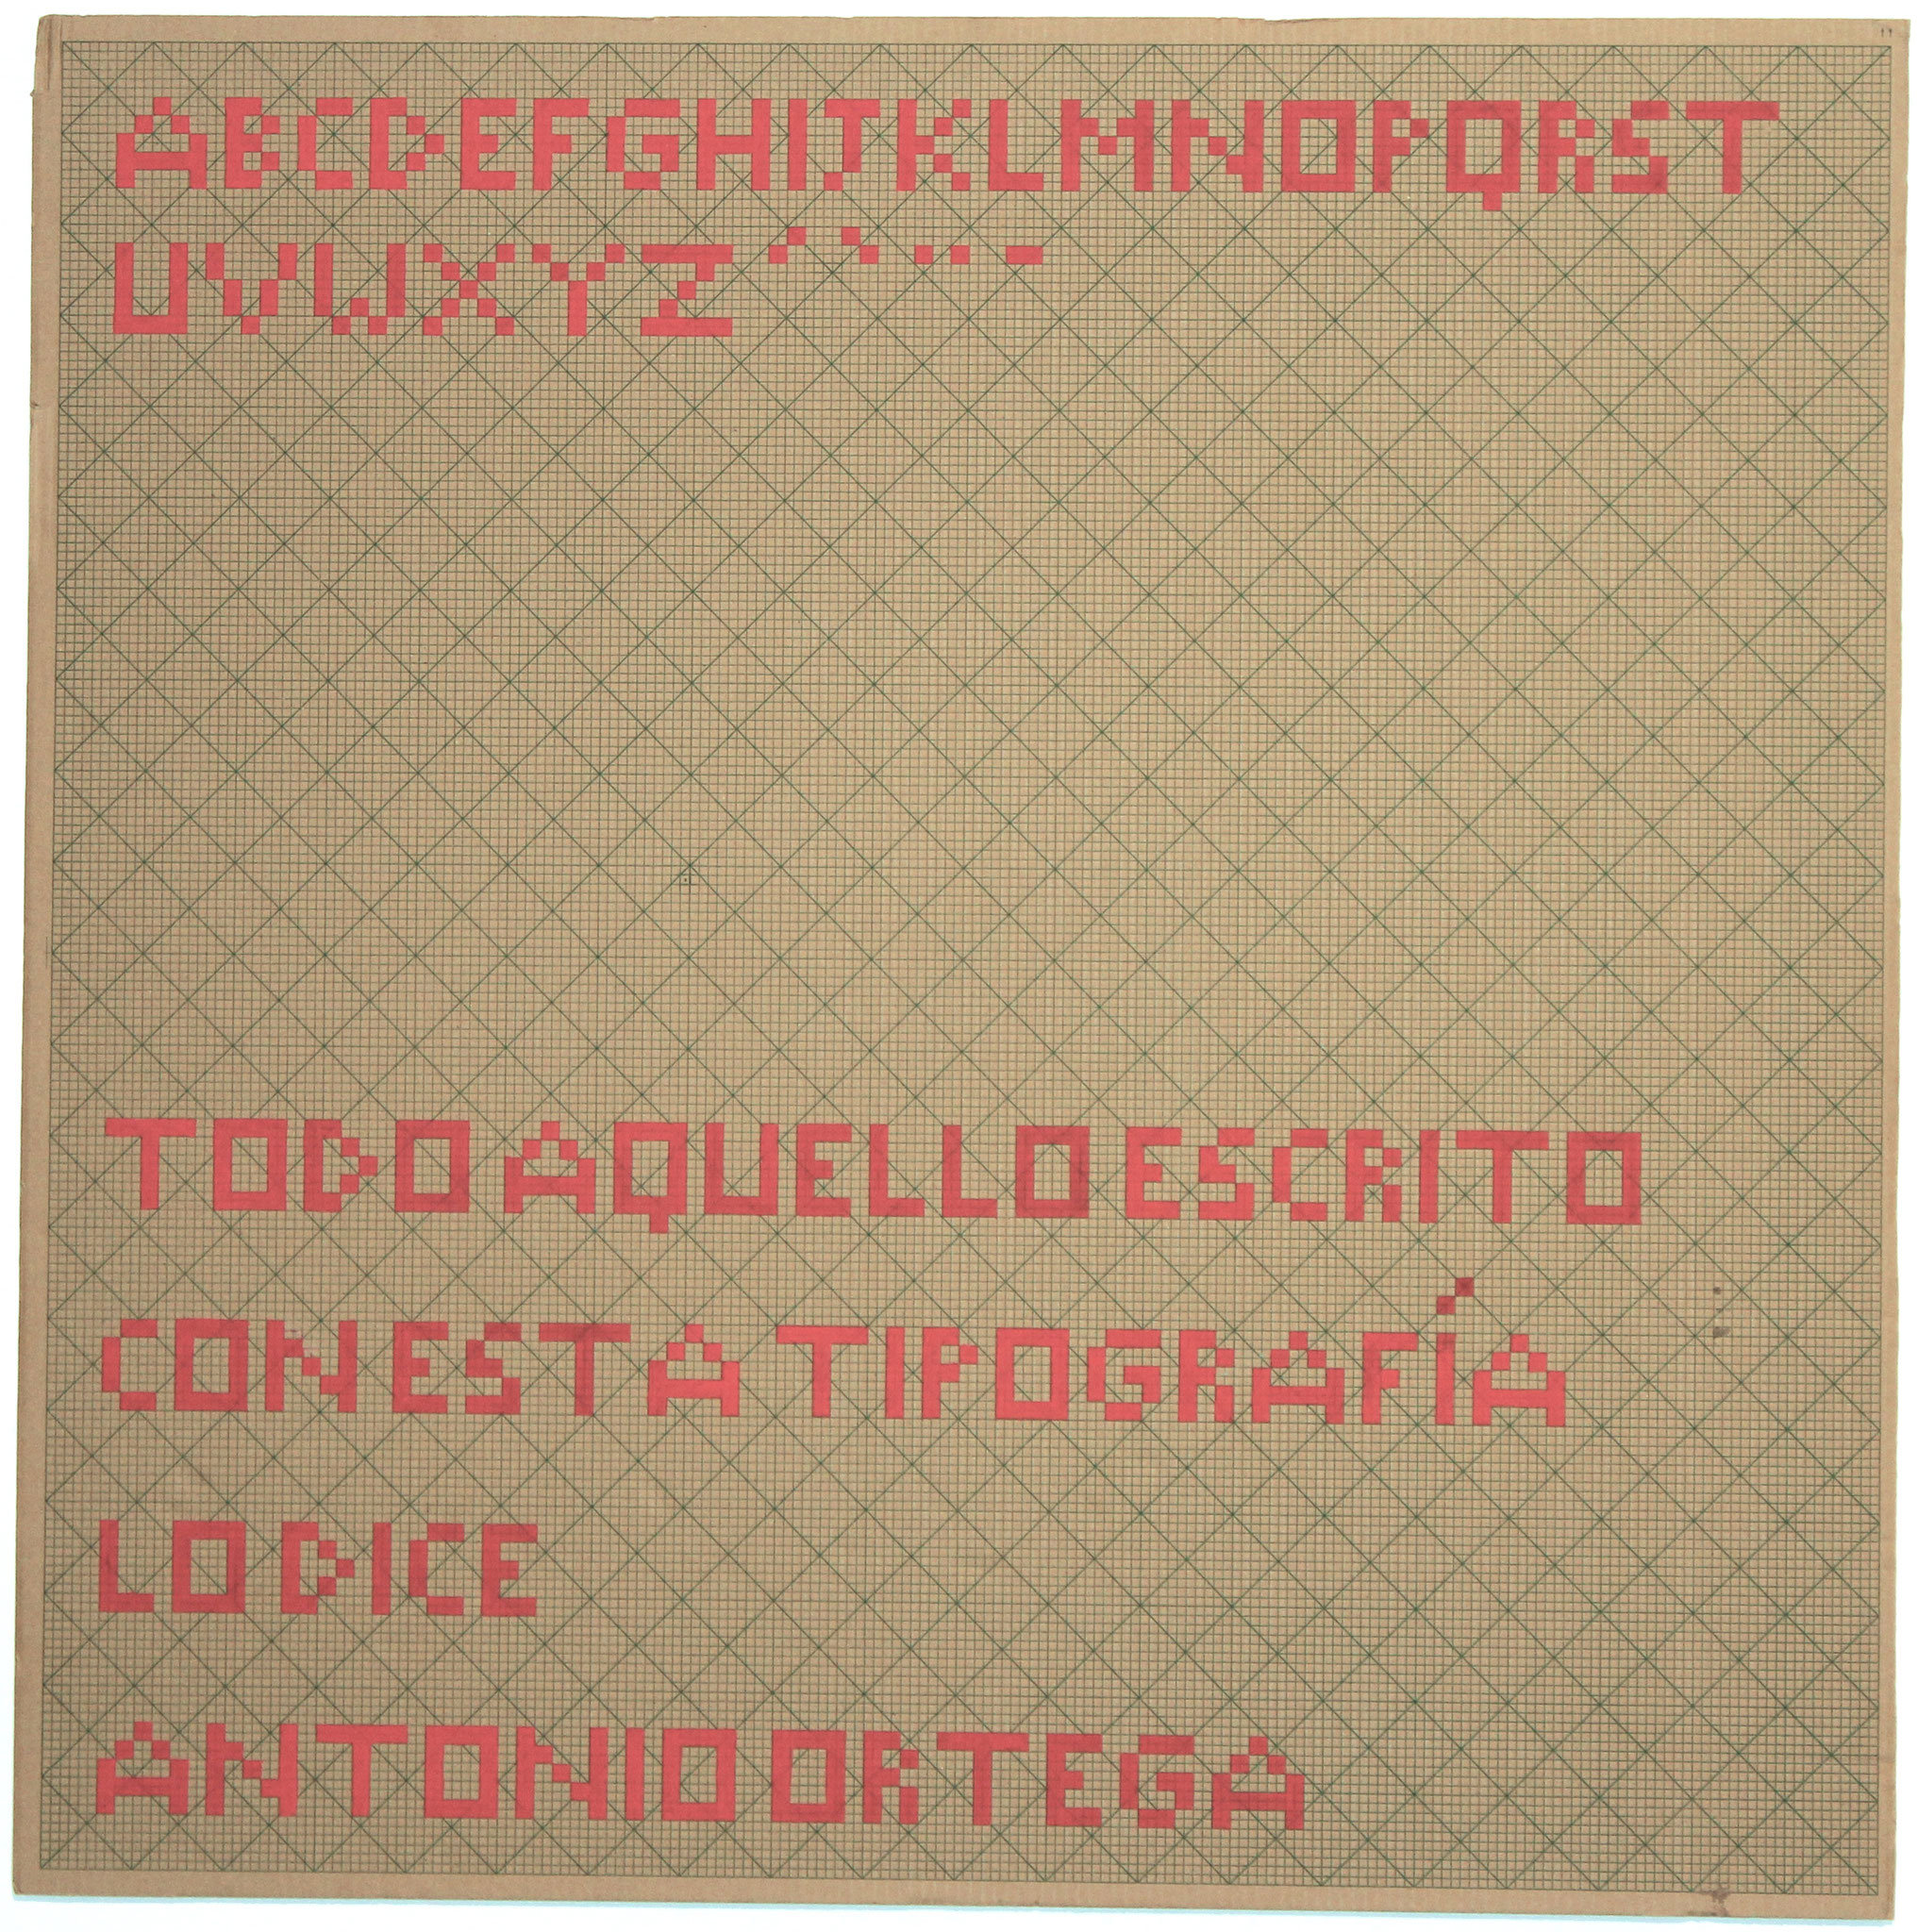 ABCDEFGHIJKLMNOPQRST
UVWXYZ ´ ` ¨ -
TODO AQUELLO ESCRITO
CON ESTA TIPOGRAFÍA
LO DICE
ANTONIO ORTEGA